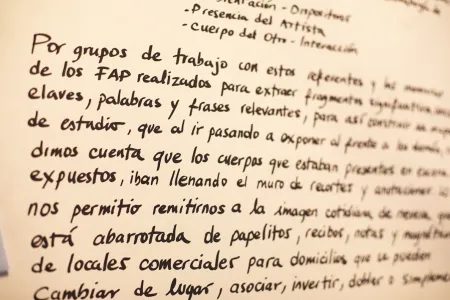 - Dispositivos
-Presencia del Artista
-Cuerpo del Otro - Interacción
Por grupos de trabajo con estos referentes y las memorias
de los FAP realizados para extraer fragmentos significativos,
claves, palabras y frases relevantes, para así construir
de estudio, que al ir pasando a exponer al frente a los demás,
dimos cuenta que los cuerpos que estaban presentes en escena
expuestos, iban llenando el muro de recortes y anotaciones
nos permitio remitirnos a la imagen cotidiana de nevera, que
está abarrotada de papelitos, recibos, notas y magnéticos
de locales comerciales para domicilios que se pueden
Cambiar de lugar, asociar, invertir, doblar o simplemente